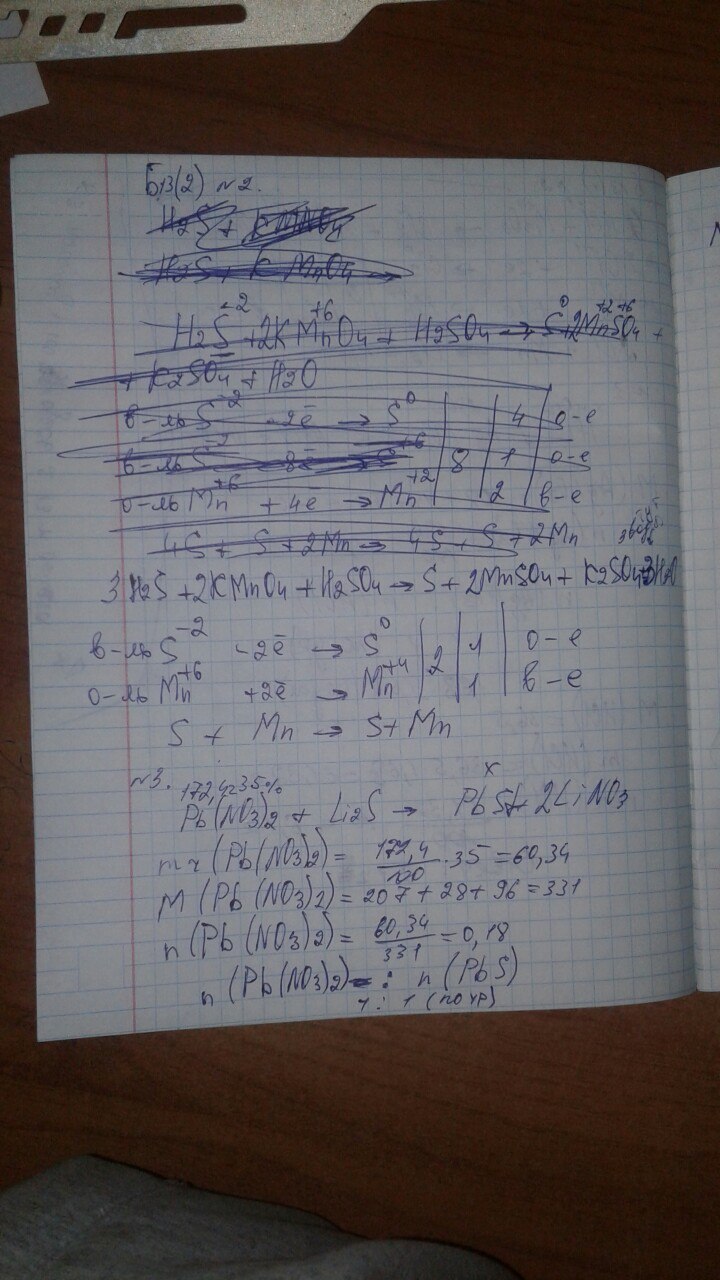 БВ(2) №2.
H2S + KMNO4
H2S + K MnO4 →
H2S-2 + 2KMn+6O4 + H2SO4 → S0 + 2Mn+2S+6O4 +
+ K2SO4 + H2O
в-ль S-2 -2ē → S0 | | 4 | о-е
в-ль S-2 -8ē → S+6 | 8 | 1 | о-е
о-ль Mn+6 + 4ē → Mn+2 | | 2 | в-е
4S + S + 2Mn → 4S + S + 2Mn
3H2S + 2KMnO4 + H2SO4 → S + 2MnSO4 + K2SO4 + 3H2O
в-ль S-2 -2ē → S0 | 2 | 1 | о-е
о-ль Mn+6 +2ē → Mn+4 | | 1 | в-е
S + Mn → S + Mn
№3. 172,4г 35% x
Pb(NO3)2 + Li2S → PbS↓ + 2LiNO3
mч (Pb(NO3)2) = 172,4/100 · 35 = 60,34
M (Pb(NO3)2) = 207 + 28 + 96 = 331
n (Pb(NO3)2) = 60,34/331 = 0,18
n (Pb(NO3)2) : n (PbS)
1 : 1 (по ур)